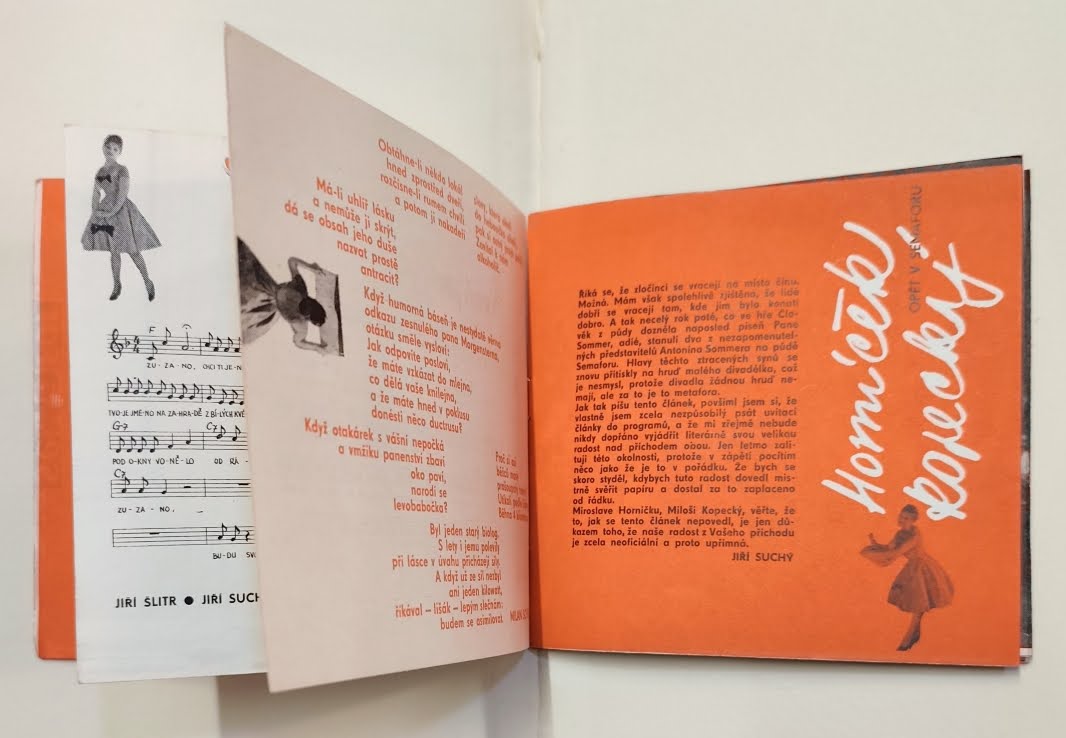 ZU-ZA-NO,
TVO-JE JMÉ-NO NA ZA-HRA-DĚ Z BÍ-LÝCH KVĚ
POD O-KNY VO-NĚ-LO OD RÁ-
ZU-ZA-NO,
BU-DU
JIŘÍ ŠLITR ● JIŘÍ SUCH
Obtáhne-li někdo lokál
hned zprostřed dveří,
rozčísne-li rumem chvíli
a potom ji nakadeří
Má-li uhlíř lásku
a nemůže ji skrýt,
dá se obsah jeho duše
nazvat prostě
antracit?
Když humorná báseň je nestydatě věrna
odkazu zesnulého pana Morgensterna,
otázku směle vyslov:
Jak odpovíte poslovi,
že máte vzkázat do mlejna,
co dělá vaše knilejna,
a že máte hned v poklusu
donésti něco ductrusu?
Když otakárek s vášní nepočká
a vmžiku panenství zbaví
oko paví,
narodí se
levobabočka?
Byl jeden starý biolog.
S lety i jemu polevily
při lásce v úvahu přicházející síly.
A když už ze sil nezbyl
ani jeden kilowatt,
říkával – lišák – lepým slečnám:
budem se asimilovat.
MILAN
Říká se, že zločinci se vracejí na místo činu.
Možná. Mám však spolehlivě zjištěno, že lidé
dobří se vracejí tam, kde jim bylo konati
dobro. A tak necelý rok poté, co ve hře Člo-
věk z půdy dozněla naposled píseň Pane
Sommer, adié, stanuli dva z nezapomenutel-
ných představitelů Antonína Sommera na půdě
Semaforu. Hlavy těchto ztracených synů se
znovu přitiskly na hruď malého divadélka, což
je nesmysl, protože divadla žádnou hruď ne-
mají, ale za to je to metafora.
Jak tak píšu tento článek, povšiml jsem si, že
vlastně jsem zcela nezpůsobilý psát uvítací
články do programů, a že mi zřejmě nebude
nikdy dopřáno vyjádřit literárně svou velikou
radost nad příchodem obou. Jen letmo zali-
tuji této okolnosti, protože v zápětí pocítím
něco jako že je to v pořádku. Že bych se
skoro styděl, kdybych tuto radost dovedl mis-
trně svěřit papíru a dostal za to zaplaceno
od řádku.
Miroslave Horníčku, Miloši Kopecký, věřte, že
to, jak se tento článek nepovedl, je jen dů-
kazem toho, že naše radost z Vašeho příchodu
je zcela neoficiální a proto upřímná.
JIŘÍ SUCHÝ
Horníček
Kopecký
OPĚT V SEMAFORU